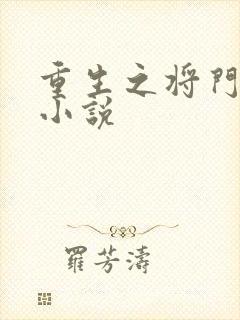 重生之将門
小説
羅芳濤